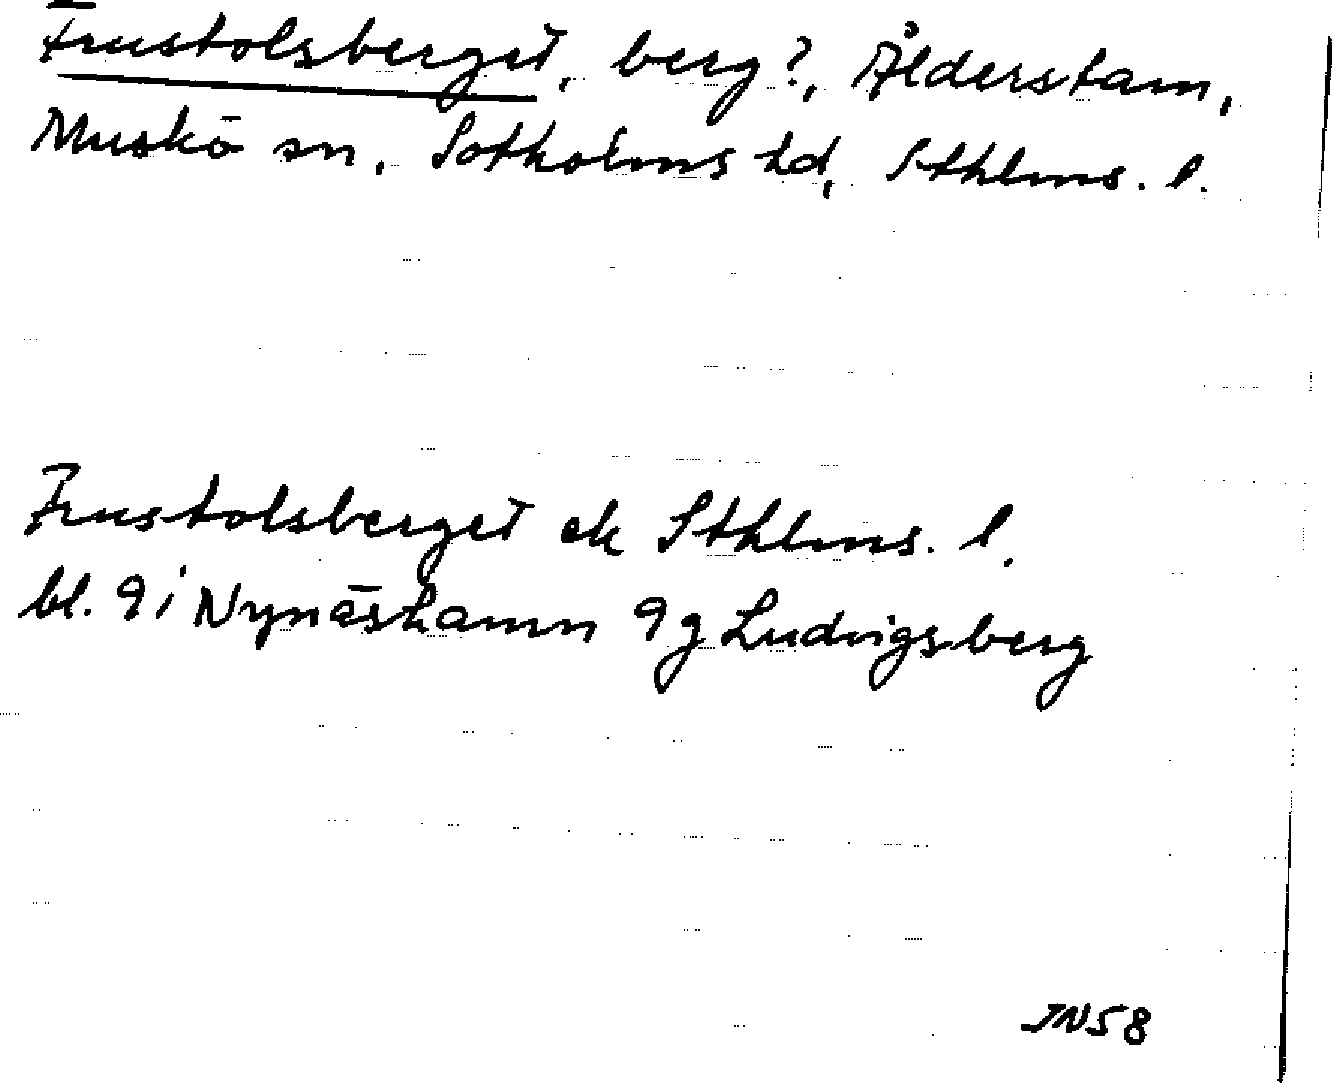 Frustolsberget, berg?, Ålderstam,
Muskö sn, Sotholms hd, Sthlms. l.
Frustolsberget ek Sthlms. l.
bl. 9i Nynäshamn 9g Ludvigsberg
JN58